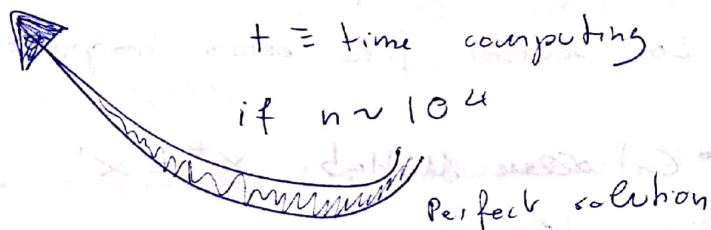 t ≡ time computing
if n ~ 10⁴
Perfect solution